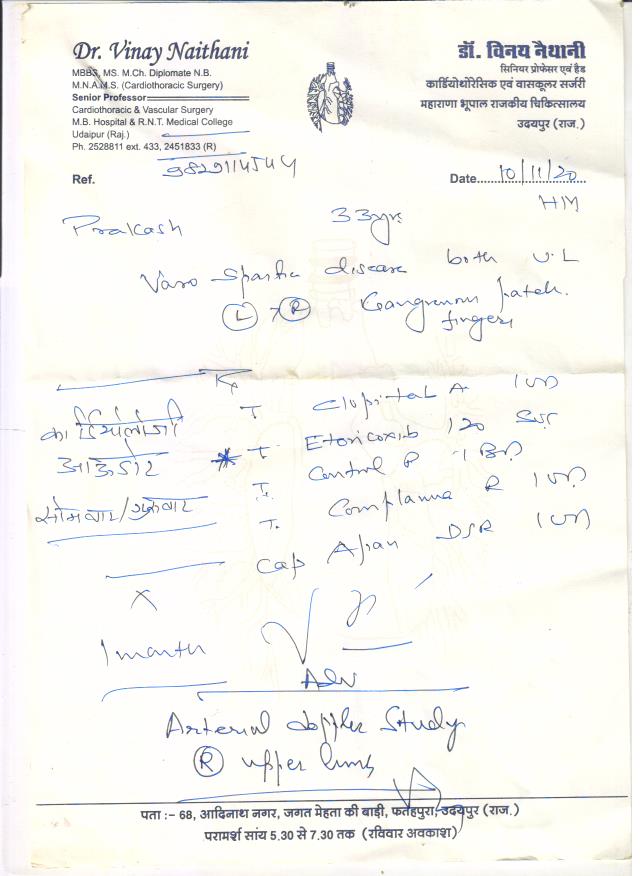 Dr. Vinay Naithani
MBBS, MS. M.Ch. Diplomate N.B.
M.N.A.M.S. (Cardiothoracic Surgery)
Senior Professor
Cardiothoracic & Vascular Surgery
M.B. Hospital & R.N.T. Medical College
Udaipur (Raj.)
Ph. 2528811 ext. 433, 2451833 (R)
डॉ. विनय नैथानी
सिनियर प्रोफेसर एवं हैड
कार्डियोथोरेसिक एवं वासकूलर सर्जरी
महाराणा भूपाल राजकीय चिकित्सालय
उदयपुर (राज.)
9829114544
Ref.
Date 10/11/20
HM
Prakash 33yrs
Vaso Spastic disease both U.L
L > R Gangrenous patch
fingers
कार्डियोलोजी
आऊटडोर
सोमवार/शुक्रवार
T Clopitab A 1 OD
T. Etoricoxib 120 SOS
T. P 1 BD
T. Complamina R 1 OD
Cap DSR 1 OD
X
1 month
Adv
Arterial doppler Study
R upper limb
पता :- 68, आदिनाथ नगर, जगत मेहता की बाड़ी, फतेहपुरा, उदयपुर (राज.)
परामर्श सांय 5.30 से 7.30 तक (रविवार अवकाश)